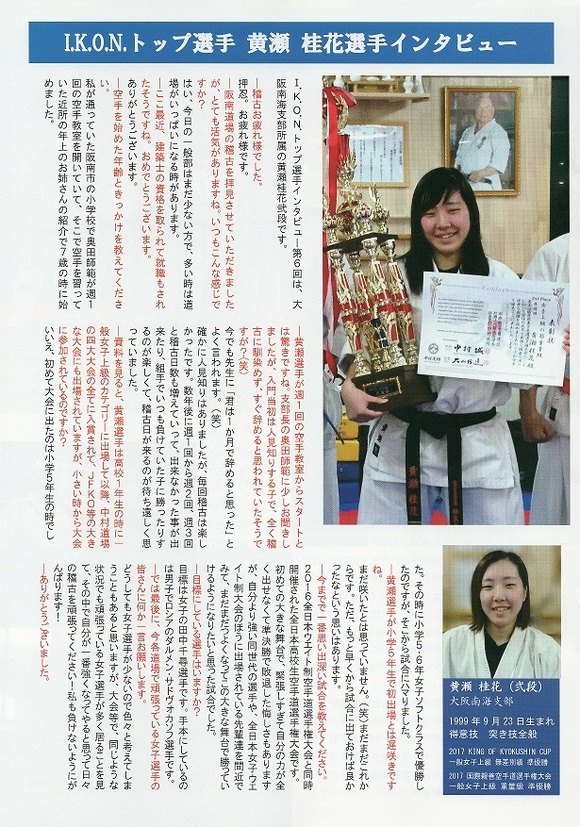 I.K.O.N.トップ選手 黄瀬 桂花選手インタビュー
I.K.O.N.トップ選手インタビュー第6回は、大
阪南海支部所属の黄瀬桂花弐段です。
―稽古お疲れ様でした。
押忍。お疲れ様です。
―阪南道場の稽古を拝見させていただきました
が、とても活気がありますね。いつもこんな感じで
すか?
はい、今日の一般部はまだ少ない方で、多い時は道
場がいっぱいになる時があります。
―ここ最近、建築士の資格を取られて就職もされ
たそうですね。おめでとうございます。
ありがとうございます。
―空手を始めた年齢ときっかけを教えてくださ
い。
私が通っていた阪南市の小学校で奥田師範が週1
回の空手教室を開いていて、そこで空手を習って
いた近所の年上のお姉さんの紹介で7歳の時に始
めました。
―黄瀬選手が週1回の空手教室からスタートと
は驚きですね。支部長の奥田師範に少しお聞きし
ましたが、入門当初は人見知りする子で、全く稽
古に馴染めず、すぐ辞めると思われていたそうで
すが?(笑)
今でも先生に「君は1か月で辞めると思った」と
よく言われます。(笑)
確かに人見知りはありましたが、毎回稽古は楽し
かったです。数年後に週1回から週2回、週3回
と稽古日数も増えていって、出来なかった事が出
来たり、組手でいつも負けていた子に勝ったりす
るのが楽しくて、稽古日が来るのが待ち遠しく思
っていました。
―資料を見ると、黄瀬選手は高校1年生の時に一
般女子上級のカテゴリーに出場して以降、中村道場
の四大大会の全てに入賞されて、JFKO等の大き
な大会にも出場されていますが、小さい時から大会
に参加されているのですか?
いいえ、初めて大会に出たのは小学5年生の時でし
た。その時に小学5・6年女子ソフトクラスで優勝し
たのですが、そこから試合にハマりました。
―黄瀬選手が小学5年生で初試合とは遅咲きです
ね。
まだ咲いたとは思っていません。(笑)まだまだこれか
らです。ただ、もっと早くから試合に出ておけば良か
ったなという思いはあります。
―今までで一番思い出深い試合を教えてください。
2016全日本ウエイト制空手道選手権大会と同時
開催された全日本高校生空手道選手権大会です。
初めての大きな舞台で、緊張しすぎて自分の力が全
く出せなくて準決勝で敗退した悔しさもあります
が、自分より強い同世代の選手や、全日本女子ウエ
イト制大会のほうに出場されている先輩達を間近で
みて、まだまだもっと強くなってこの大きな舞台で勝ってい
けるようになりたいと思った試合でした。
―目標にしている選手はいますか?
目標は女子の田中千尋選手です。手本にしているの
は男子でロシアのダルメン・サドヴォカソフ選手です。
―では最後に、今各道場で頑張っている女子選手の
皆さんに何か一言お願いします。
どうしても女子選手が少ないので色々と考えてしま
うこともあると思いますが、大会等で、同じような
状況でも頑張っている女子選手が多く居ることを見
て、その中で自分が一番強くなってやると思って日々
の稽古を頑張ってください!私も負けないようにが
んばります!
―ありがとうございました。
表彰状
中村誠
黄瀬桂花
黄瀬 桂花 (弐段)
大阪南海支部
1999年9月23日生まれ
得意技 突き技全般
2017 KING OF KYOKUSHIN CUP
一般女子上級 無差別級 準優勝
2017 国際親善空手道選手権大会
一般女子上級 重量級 準優勝